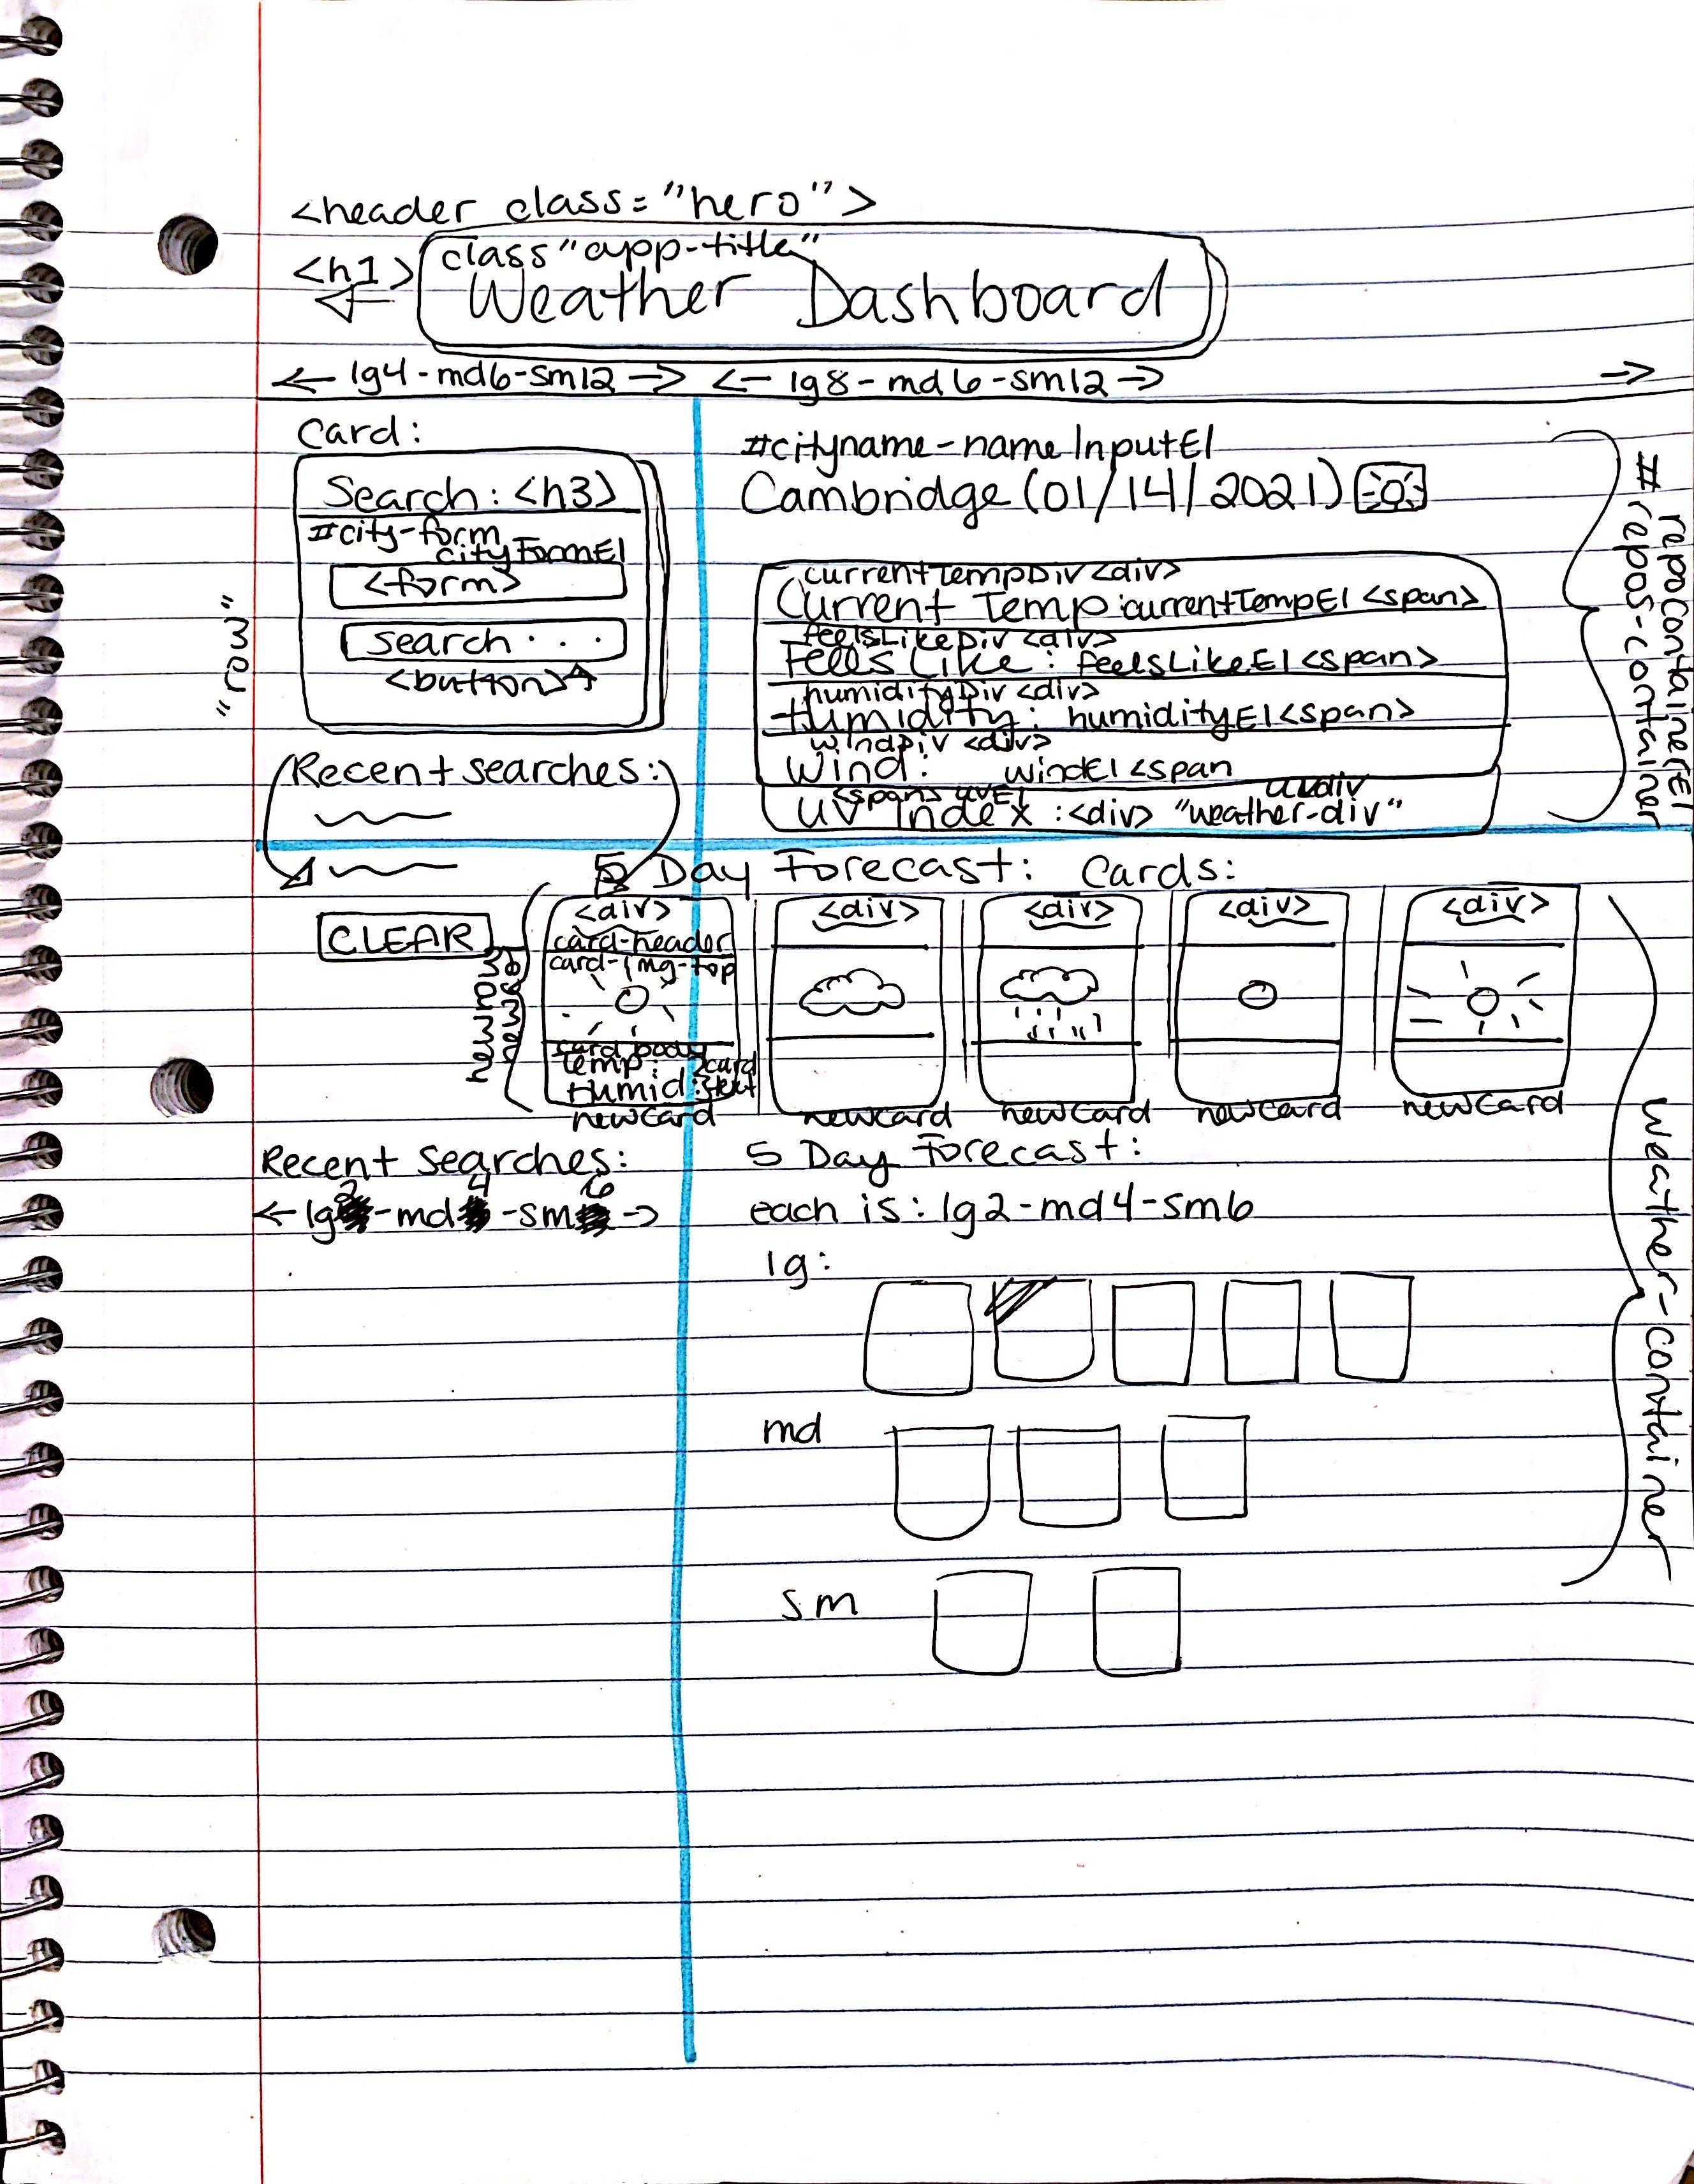 <header class="hero">
<h1> class "app-title"
Weather Dashboard
← lg4-md6-sm12 → ← lg8-md6-sm12 → →
Card:
Search: <h3>
#city-form
cityFormEl
<form>
search . . .
<button>
"row"
#cityname-nameInputEl
Cambridge (01/14/2021)
currentTempDiv <div>
Current Temp: currentTempEl <span>
feelsLikeDiv <div>
Feels Like: feelsLikeEl <span>
humidityDiv <div>
Humidity: humidityEl <span>
windDiv <div>
Wind: windEl <span
<span> uvEl uvdiv
UV Index: <div> "weather-div"
repoContainerEl
#repos-container
Recent searches:
5 Day Forecast: Cards:
CLEAR
<div> <div> <div> <div> <div>
card-header
card-img-top
card body
Temp: card
Humid: text
newCard newCard newCard newCard newCard
weather-container
Recent Searches:
2 4 6
← lg -md -sm →
5 Day Forecast:
each is: lg2-md4-sm6
lg:
md
sm